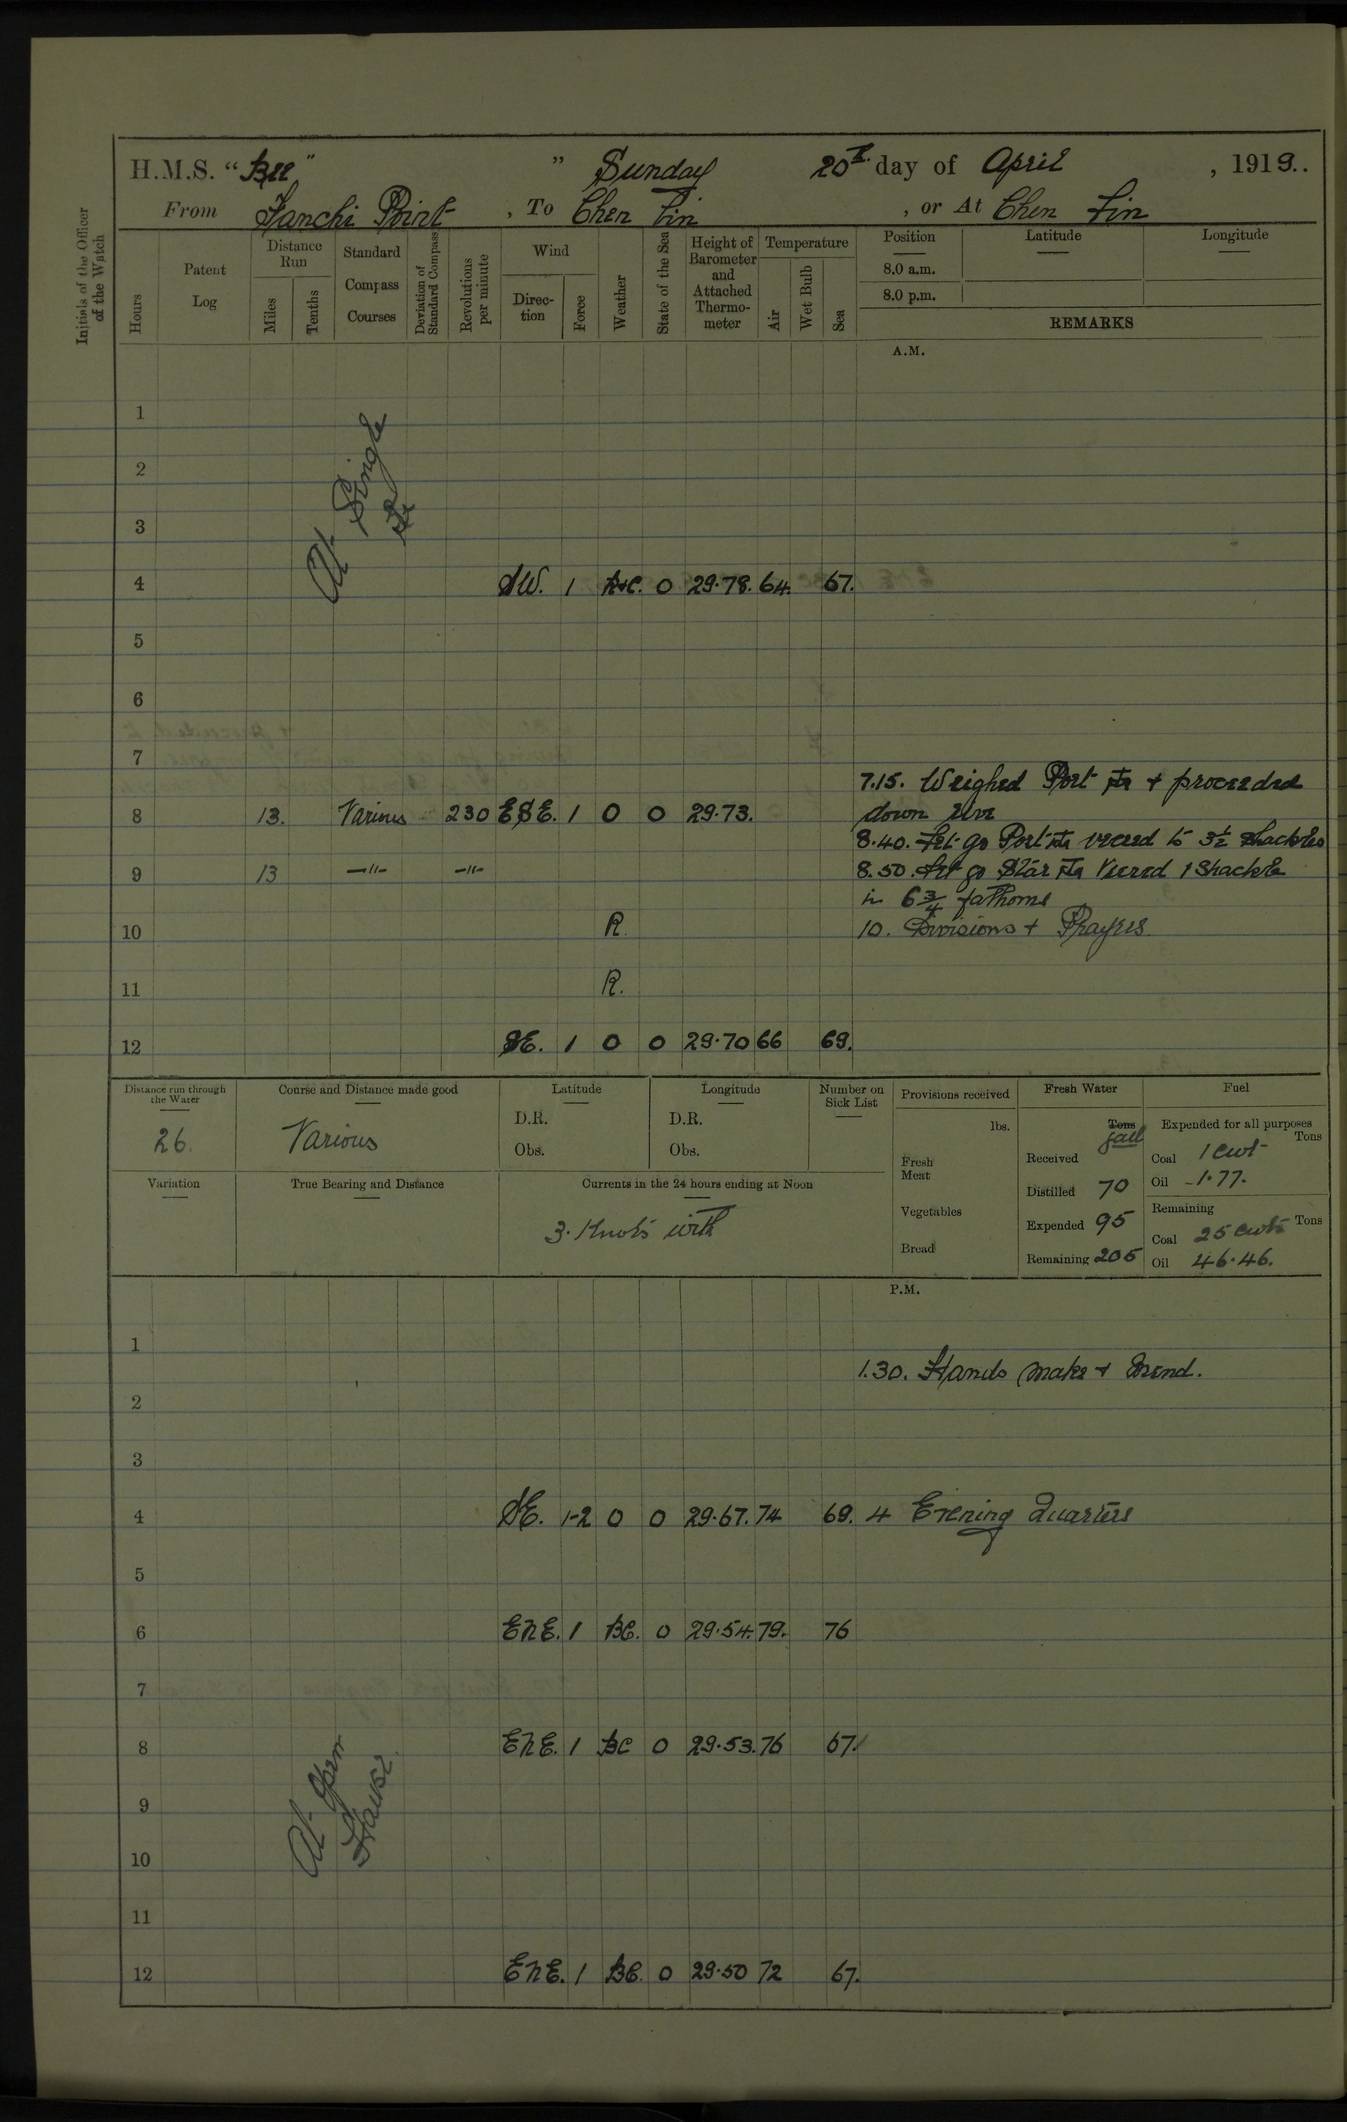 H.M.S. "Bee" " Sunday 20th day of April, 1919.
From Fanchi Point, To Chen Lin, or At Chen Lin
Initials of the Officer of the Watch
Hours
Patent Log
Distance Run
Miles
Tenths
Standard Compass Courses
Deviation of Standard Compass
Revolutions per minute
Wind
Direction
Force
Weather
State of the Sea
Height of Barometer and Attached Thermometer
Temperature
Air
Wet Bulb
Sea
Position
8.0 a.m.
8.0 p.m.
Latitude
Longitude
REMARKS
A.M.
1
2
At Single
3
4 SW. 1 B+C. 0 29.78. 64. 67.
5
6
7
7.15. Weighed Port & proceeded
8 13. Various 230 ESE. 1 O 0 29.73. down river
8.40. Let go Port veered to 3½ shackles
9 13 -"- -"- 8.50. Let go Star Veered 1 Shackle
in 6¾ fathoms
10 R. 10. Divisions + Prayers
11 R.
12 SE. 1 O 0 29.70 66 69.
Distance run through the Water
26.
Course and Distance made good
Various
Latitude
D.R.
Obs.
Longitude
D.R.
Obs.
Number on Sick List
Provisions received
lbs.
Fresh Meat
Vegetables
Bread
Fresh Water
Tons
gall
Received
Distilled 70
Expended 95
Remaining 205
Fuel
Expended for all purposes
Tons
Coal 1 cwt
Oil 1.77.
Remaining
Tons
Coal 25 cwts
Oil 46.46.
Variation
True Bearing and Distance
Currents in the 24 hours ending at Noon
3. Knots with
P.M.
1
1.30. Hands make + mend.
2
3
4 SE. 1-2 O 0 29.67. 74 69. 4 Evening Quarters
5
6 ENE. 1 BC. 0 29.54. 79. 76
7
8 ENE. 1 BC 0 29.53. 76 67.
9
At Open
Hawse
10
11
12 ENE. 1 BC. 0 29.50 72 67.